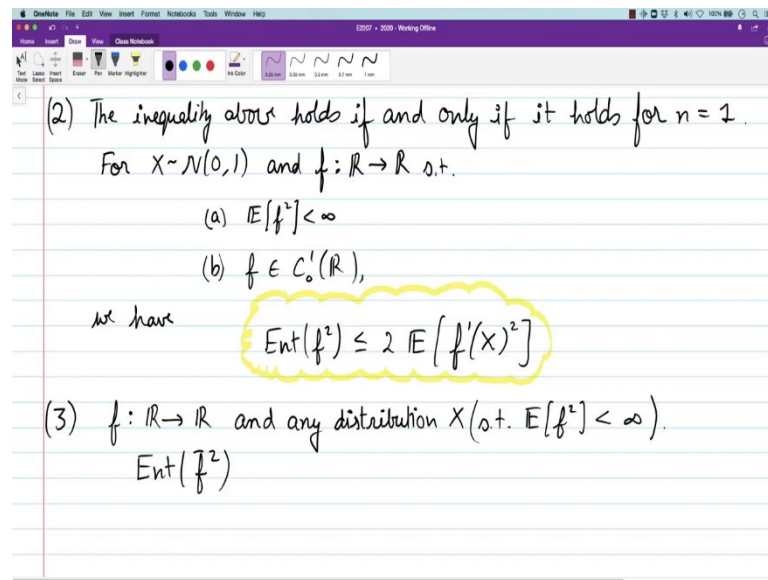 OneNote File Edit View Insert Format Notebooks Tools Window Help
100%
E2207 • 2020 - Working Offline
Home Insert Draw View Class Notebook
Text Mode Lasso Select Insert Space Eraser Pen Marker Highlighter Ink Color 0.35 mm 0.5 mm 0.7 mm 1 mm
(2) The inequality above holds if and only if it holds for n = 1.
For X ~ N(0,1) and f : ℝ → ℝ s.t.
(a) 𝔼[f²] < ∞
(b) f ∈ C₀¹(ℝ),
we have
Ent(f²) ≤ 2 𝔼[f'(X)²]
(3) f : ℝ → ℝ and any distribution X (s.t. 𝔼[f²] < ∞).
Ent(f²)